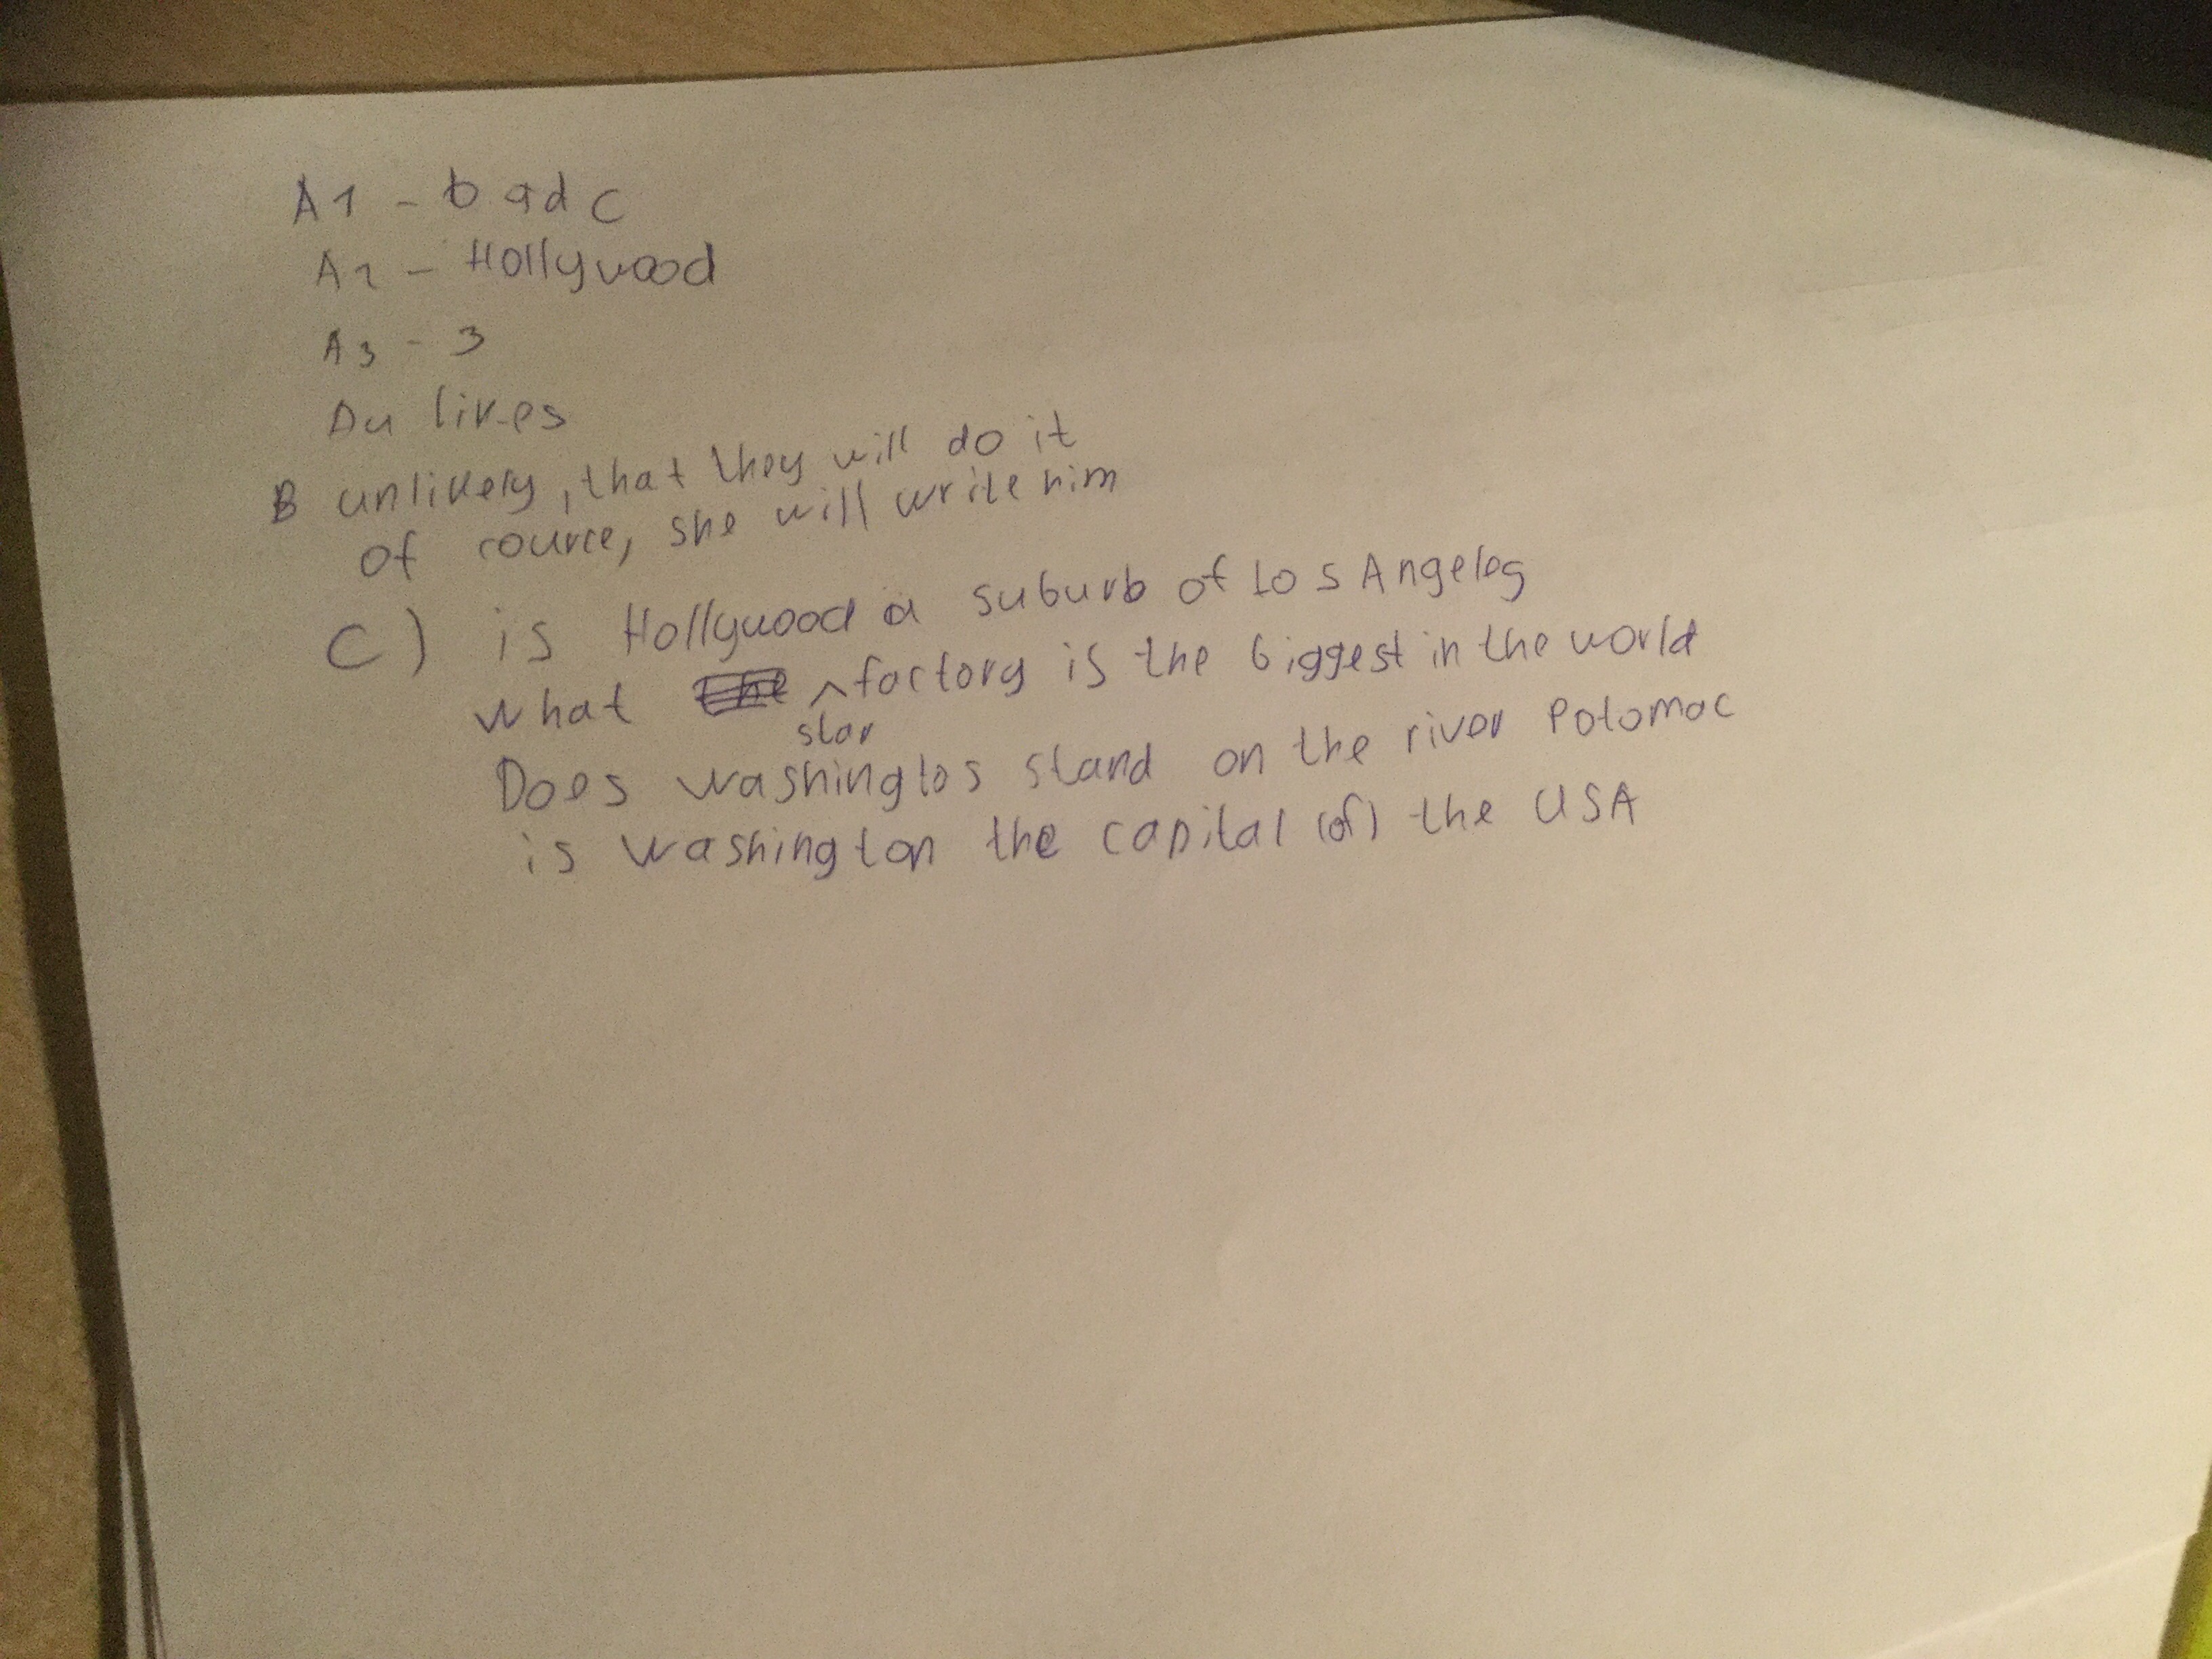 A1 - b a d c
A2 - Hollywood
A3 - 3
lives
B unlikely, that they will do it
of cource, she will write him
C) is Hollywood a suburb of Los Angeles
what star factory is the biggest in the world
Does washingtos stand on the river Potomac
is washington the capital (of) the USA